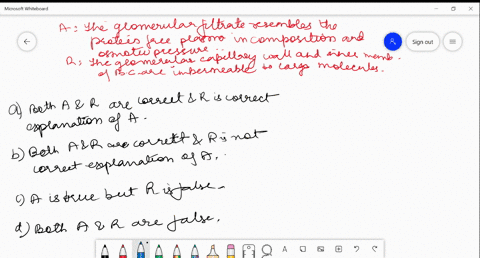 Microsoft Whiteboard
A: The glomerular filtrate resembles the
protein free plasma in composition and
osmotic pressure..
R: The glomerular capillary wall and inner memb.
of BC are impermeable to large molecules.
Sign out
a) Both A & R are correct & R is correct
explanation of A.
b) Both A & R are correct & R is not
correct explanation of A.
c) A is true but R is false.
d) Both A & R are false.